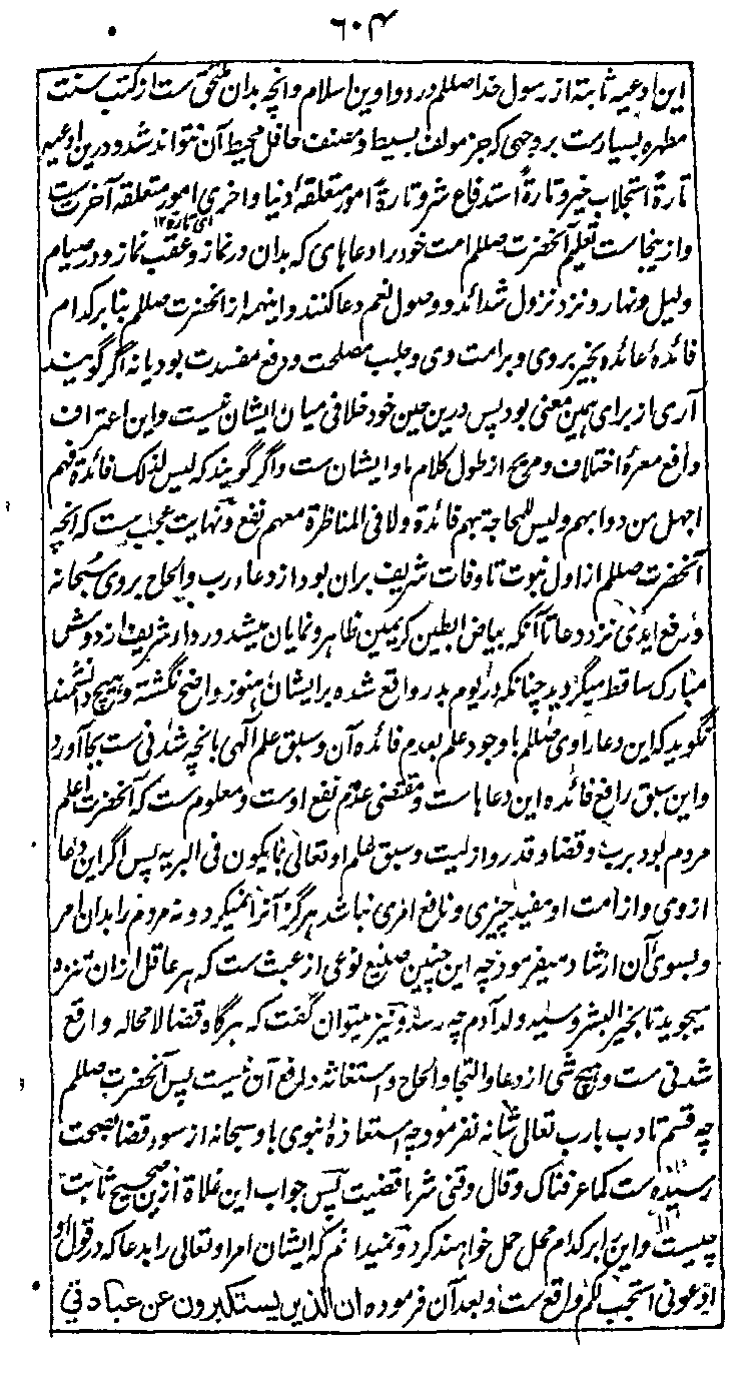 ۶۰۴
این ادعیه ثابته از رسول خدا صللم در دواوین اسلام وانچه بدان ملحق ست از کتب سنت
مطهره بسیارست بروجهی که جز مولف بسیط و مصنف حافل محیط آن نتواند شد و درین ادعیه
تارةً استجلاب خیر و تارةً استدفاع شر و تارةً امور متعلقهٔ دنیا و اخری امور متعلقه آخرت ست
ای تارة ۱۲
و ازینجاست تعلیم آنحضرت صللم امت خود را دعاهای که بدان در نماز و عقب نماز و در صیام
و لیل و نهار و نزد نزول شدائد و وصول نعم دعا کنند و اینهمه از آنحضرت صللم بنا بر کدام
فائدهٔ عائده بخیر بر وی و بر امت وی و جلب مصلحت و دفع مفسدت بود یا نه اگر گویند
آری از برای همین معنی بود پس درین حین خود خلافی میان ایشان نیست و این اعتراف
دافع معرهٔ اختلاف و مریح از طول کلام ما و ایشان ست و اگر گویند که لیس لذلک فائدة فهم
اجهل من دوابهم و لیس للمحاجة بهم فائدة ولا فی المناظرة معهم نفع و نهایت عجب ست که انچه
آنحضرت صللم از اول نبوت تا وفات شریف بران بود از دعاء رب و الحاح بروی سبحانه
و رفع ایدی نزد دعا تا آنکه بیاض ابطین کریمین ظاهر و نمایان میشد و ردا شریف از دوش
مبارک ساقط میگردید چنانکه در یوم بدر واقع شده بر ایشان هنوز واضح نگشته و هیچ دانشمند
نگوید که این دعا را وی صللم با وجود علم بعدم فائده آن و سبق علم آلهی بانچه شدنی ست بجا آورد
و این سبق رافع فائده این دعاهاست و مقتضی عدم نفع اوست و معلوم ست که آنحضرت اعلم
مردم بود برب و قضا و قدر و ازلیت و سبق علم او تعالی بما یکون فی البریه پس اگر این دعا
از وی و از امت او مفید چیزی و نافع امری نباشد هرگز آنرا نمیکرد و نه مردم را بدان امر
و بسوی آن ارشاد میفرمود چه این چنین صنیع نوعی از عبث ست که هر عاقل ازان تنزه
میجوید تا بخیر البشر و سید ولد آدم چه رسد و نیز میتوان گفت که هرگاه قضا لا محاله واقع
شدنی ست و هیچ شی از دعا و التجا و الحاح و استغاثه دافع آن نیست پس آنحضرت صللم
چه قسم تادب بارب تعالی شانه نفرمود چه استعاذهٔ نبوی باو سبحانه از سوء قضا بصحت
رسیده ست کما عرفناک و قال وقنی شر ما قضیت پس جواب این غلاة ازین صحیح ثابت
چیست و این را بر کدام محل حمل خواهند کرد و نمیدانم که ایشان امر او تعالی را بدعا که در قول او
ادعونی استجب لکم واقع ست و بعد آن فرموده ان الذین یستکبرون عن عبادتی